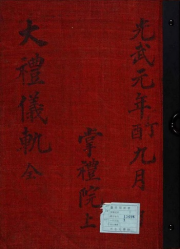 光武元年丁酉九月
掌禮院上
大禮儀軌 全